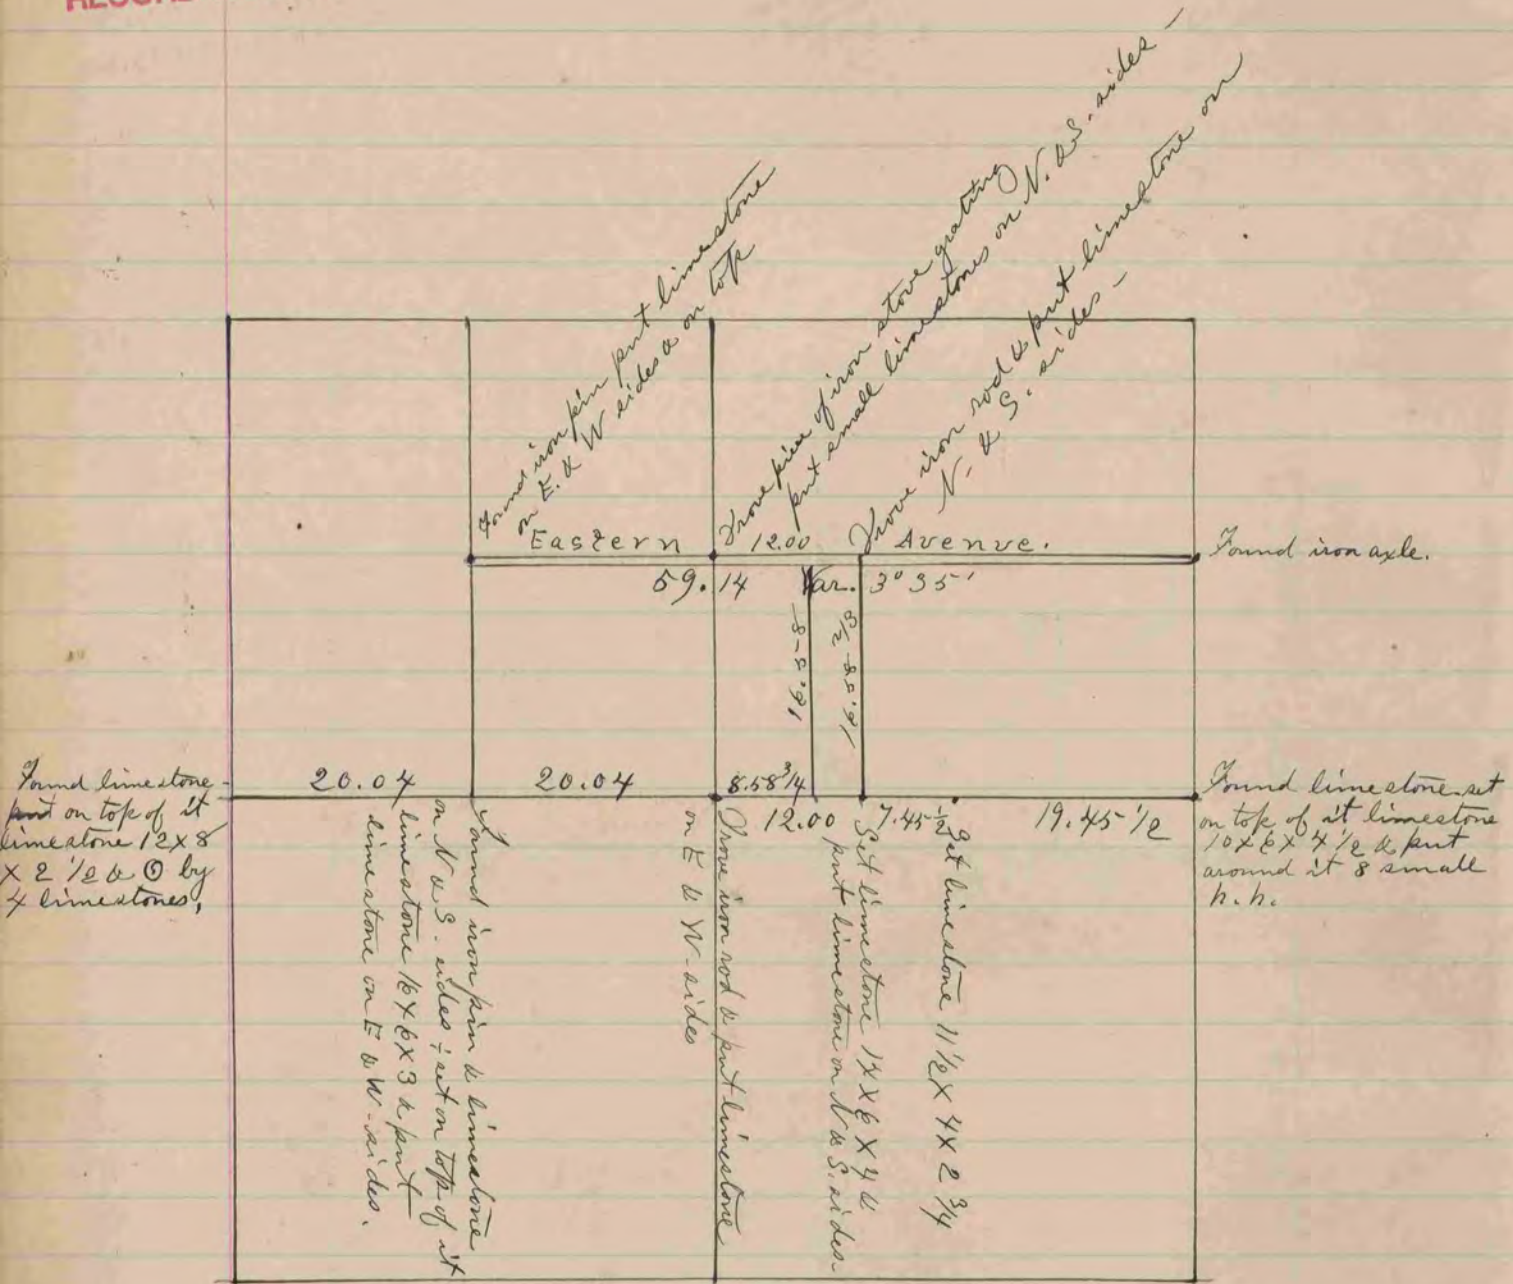 Found iron pin put limestone
on E. & W sides & on top
Drove piece of iron stove grating
put small limestones on N. & S. sides -
Drove iron rod & put limestone on
N. & S. sides -
Eastern 12.00 Avenue.
Found iron axle.
59.14 Var. 3° 35'
Found limestone -
put on top of it
limestone 12 x 8
x 2 1/2 & ⊙ by
4 limestones,
20.04
20.04
8.58 3/4
12.00
7.45 1/2
19.45 1/2
Found limestone set
on top of it limestone
10 x 6 x 4 1/2 & put
around it 8 small
h. h.
Found iron pin & limestone
on N & S. sides ; set on top of it
limestone 16 x 6 x 3 & put
limestone on E & W - sides.
Drove iron rod & put limestone
on E & W - sides
Set limestone x 6 x 4 &
put limestone on N & S. sides -
Set limestone 11 1/2 x 4 x 2 3/4